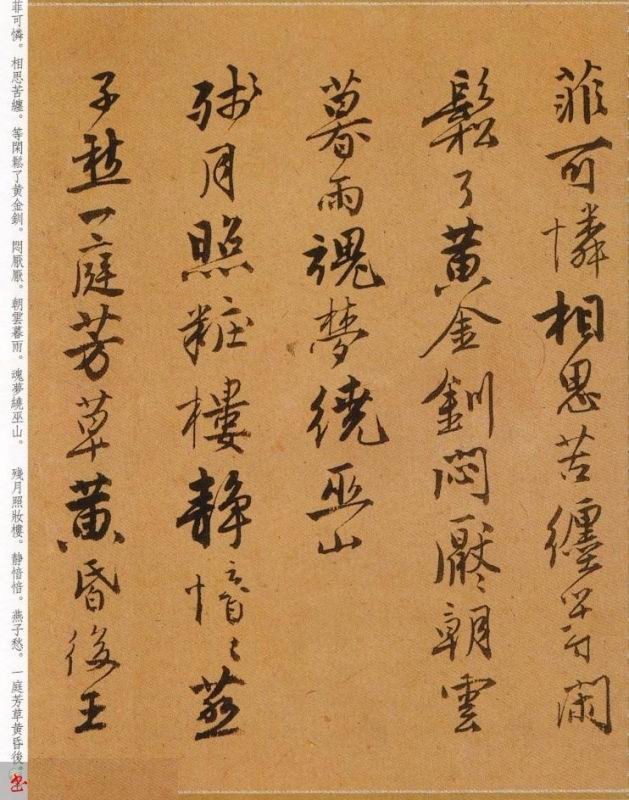 菲可憐相思苦纏等閑
鬆了黃金釧悶厭〻朝雲
暮雨魂夢繞巫山
殘月照粧樓靜愔〻燕
子愁一庭芳草黃昏後王
菲可憐。相思苦纏。等閑鬆了黃金釧。悶厭厭。朝雲暮雨。魂夢繞巫山。　殘月照妝樓。靜愔愔。燕子愁。一庭芳草黃昏後。